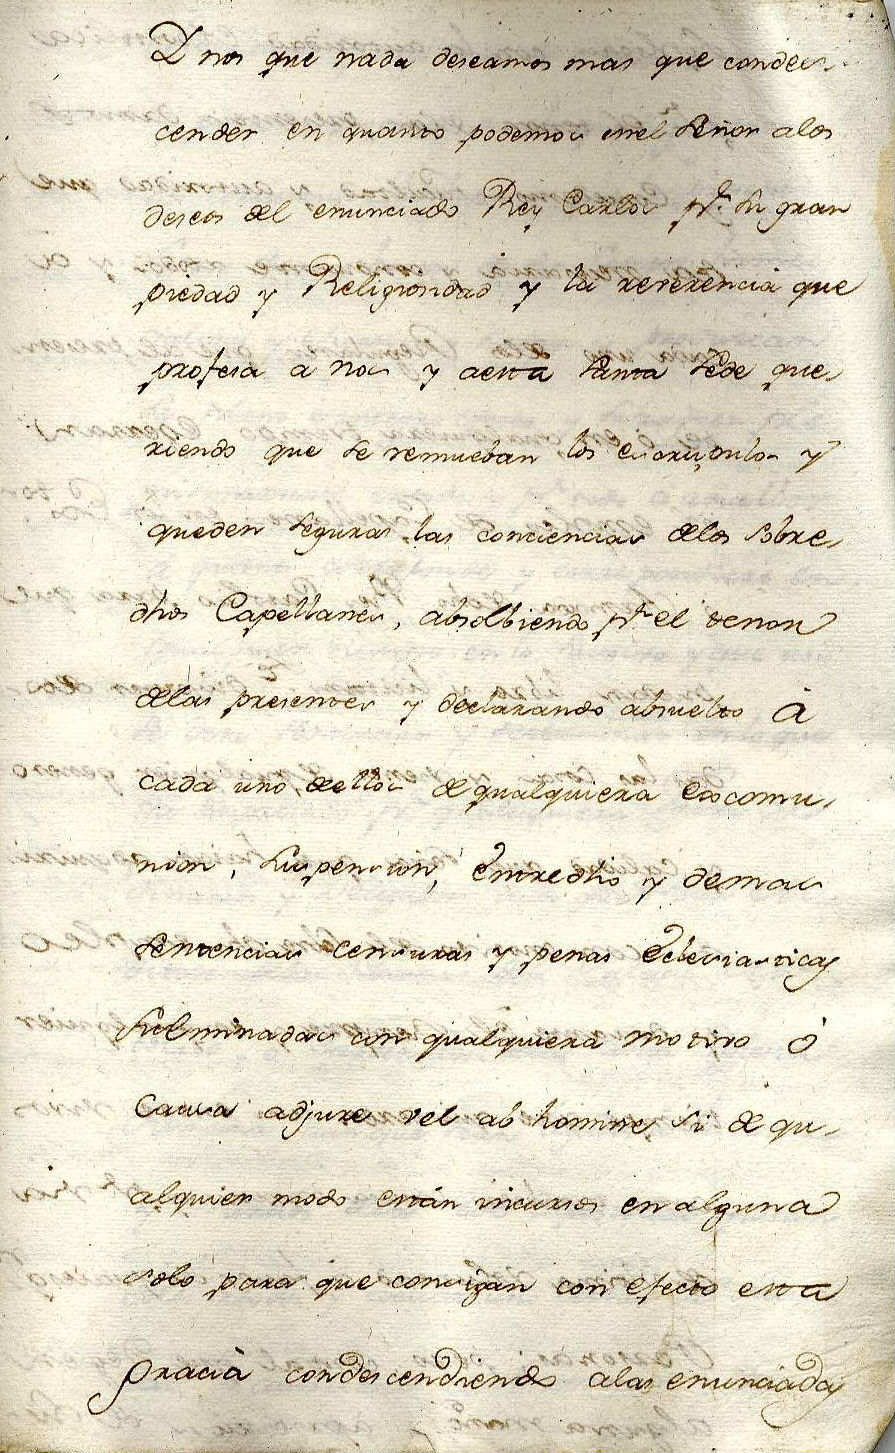 Y nos que nada deseamos mas que condes-
cender en quanto podemos enel Señor alos
deseos del enunciado Rey Carlos pr. su gran
piedad y Religiosidad y la reverencia que
profesa a nos y aesta Santa Sede que-
riendo que se remueban los escrupulos y
queden seguras las conciencias delos sobre-
dhos Capellanes, absolbiendo pr el tenor
delas presentes y declarando absuelto à
cada uno dellos de qualquiera excomu-
nion, suspension, Entredho y demas
sentencias censuras y penas Eclesiasticas
fulminadas con qualquiera motivo ò
Causa adjure vel ab homine si de qu-
alquier modo están incursos en alguna
solo para que consigan con efecto esta
gracia condescendiendo alas enunciadas